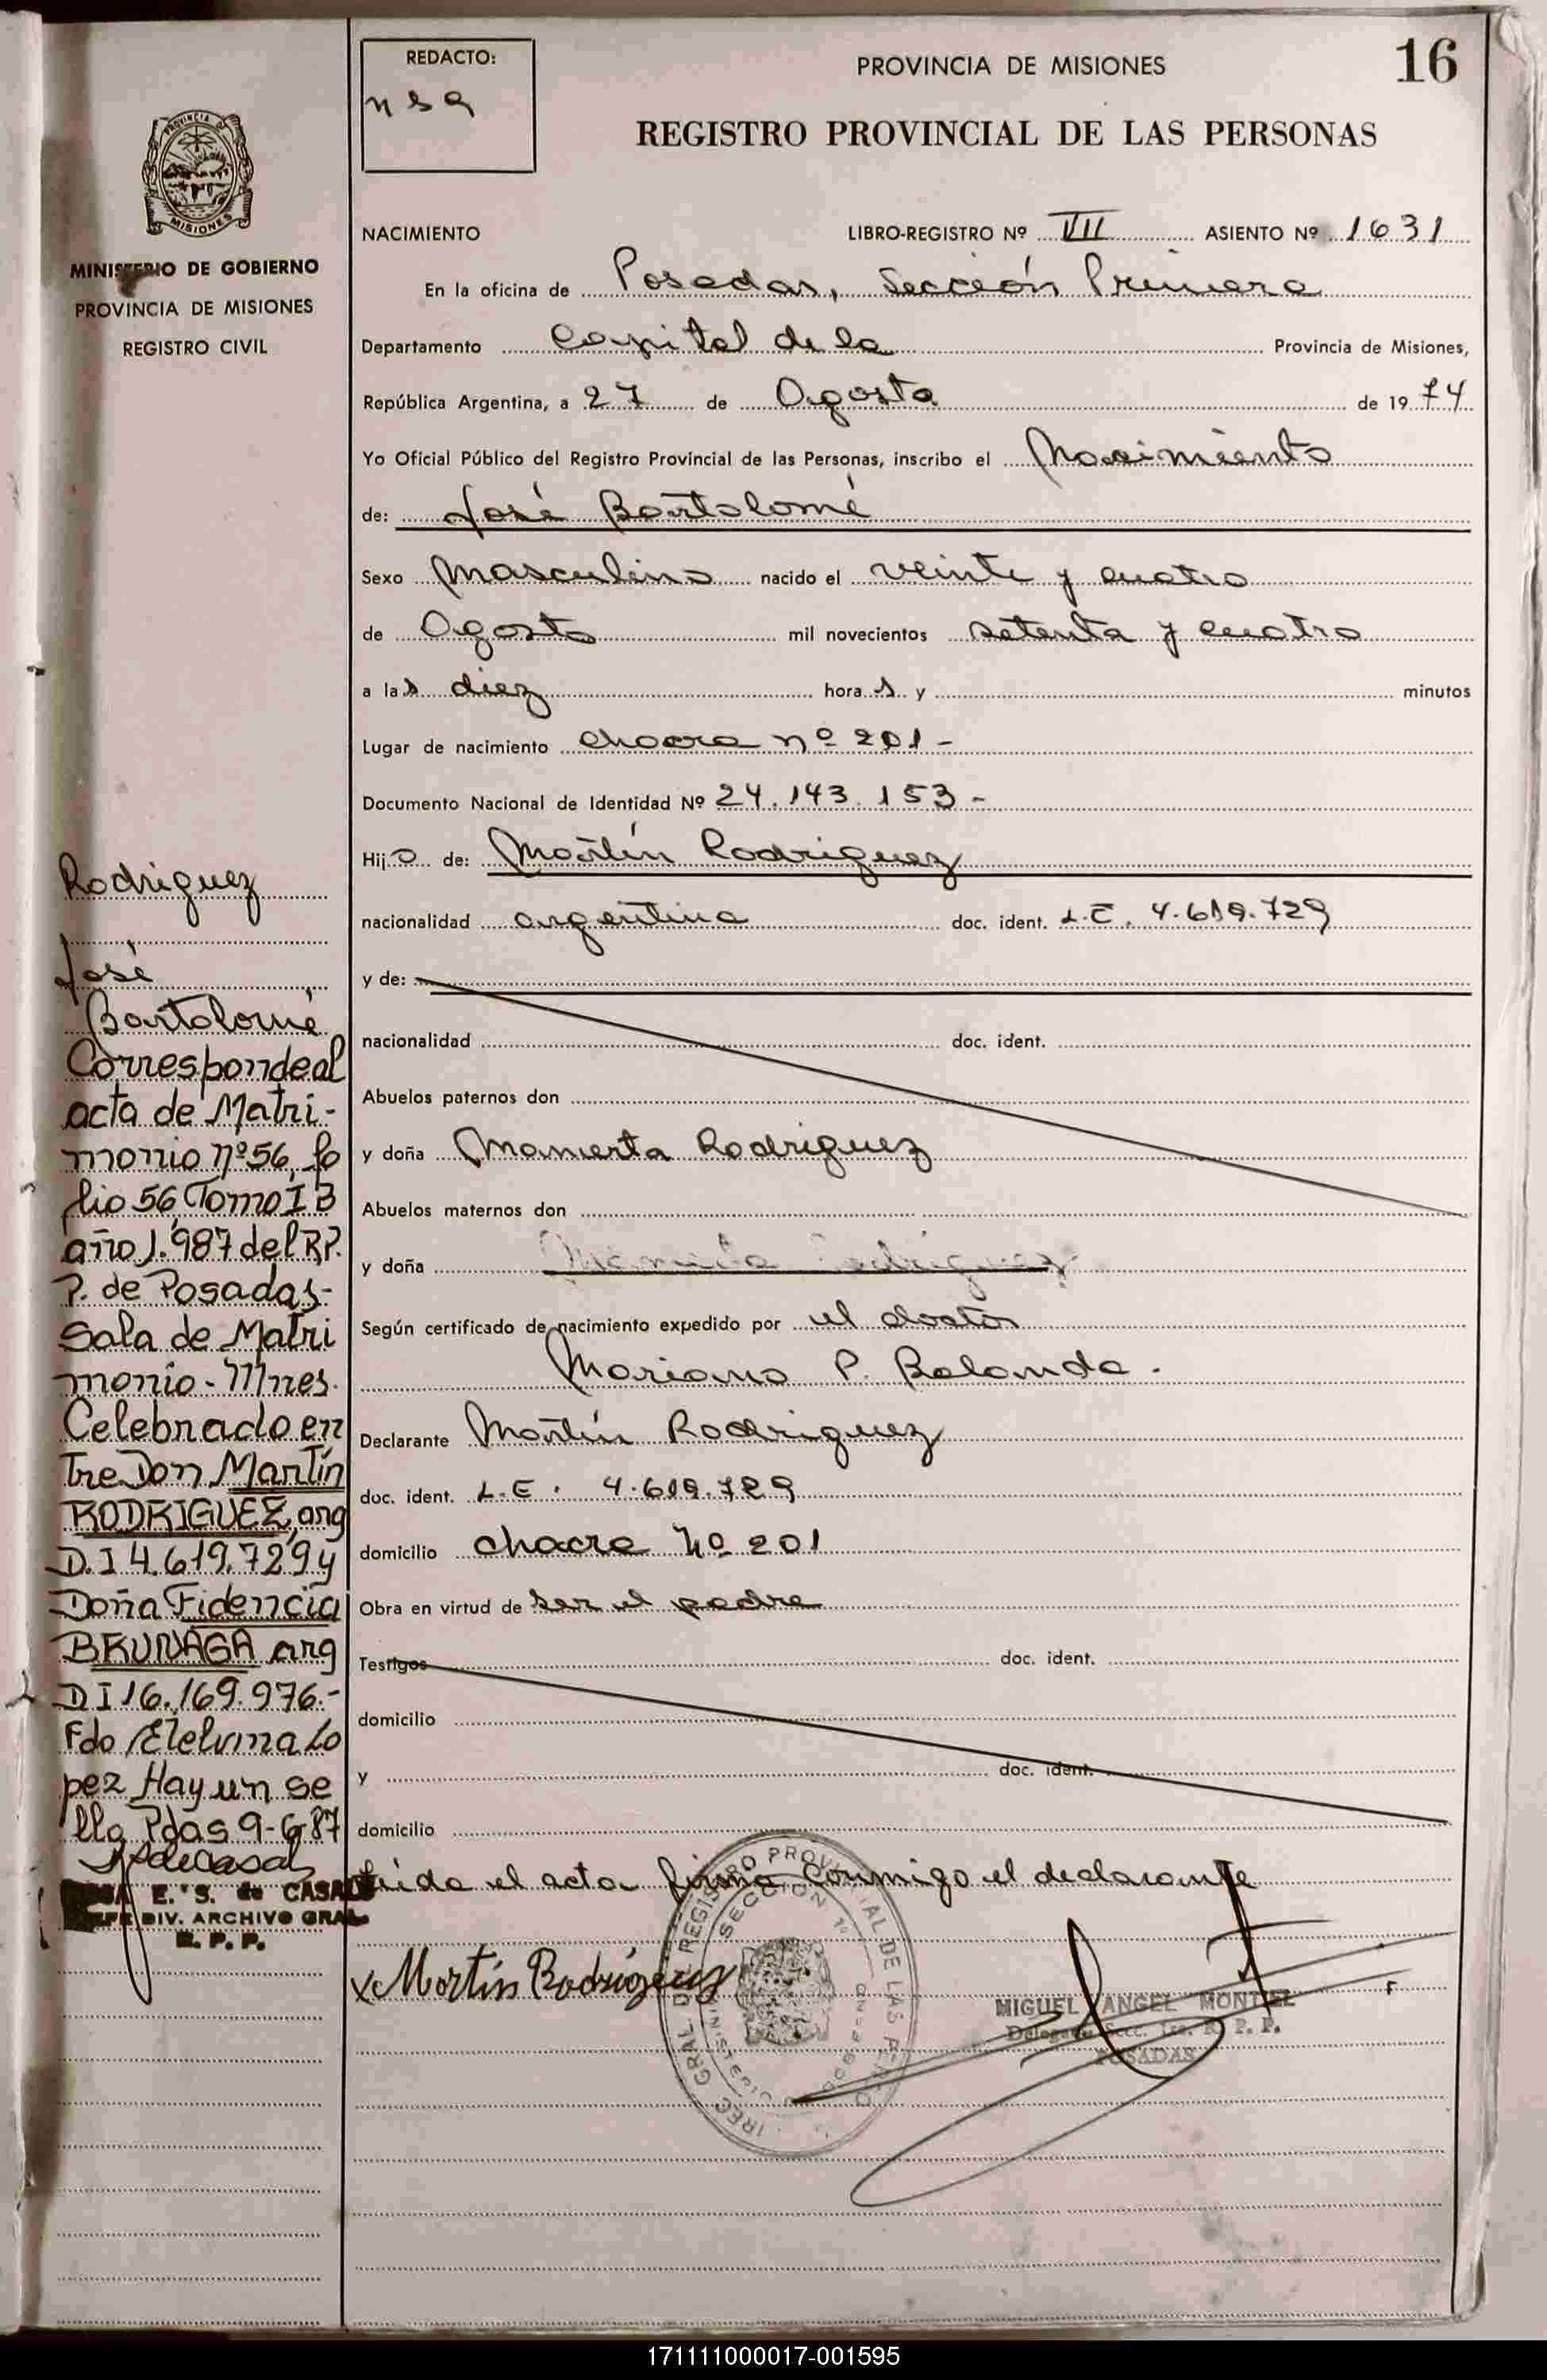 REDACTO:
nsa
PROVINCIA DE MISIONES
16
REGISTRO PROVINCIAL DE LAS PERSONAS
PROVINCIA
MISIONES
MINISTERIO DE GOBIERNO
PROVINCIA DE MISIONES
REGISTRO CIVIL
NACIMIENTO LIBRO-REGISTRO Nº VII ASIENTO Nº 1631
En la oficina de Posadas, Sección Primera
Departamento Capital de la Provincia de Misiones,
República Argentina, a 27 de Agosto de 1974
Yo Oficial Público del Registro Provincial de las Personas, inscribo el Nacimiento
de: José Bartolomé
Sexo Masculino nacido el veinte y cuatro
de Agosto mil novecientos setenta y cuatro
a las diez horas y minutos
Lugar de nacimiento chacra nº 201 -
Documento Nacional de Identidad Nº 24.143.153 -
Hijo de: Martín Rodriguez
nacionalidad argentina doc. ident. L.E. 4.619.729
y de:
nacionalidad doc. ident.
Abuelos paternos don
y doña Mamerta Rodriguez
Abuelos maternos don
y doña Rodriguez
Según certificado de nacimiento expedido por el doctor
Mariano P. Balanda.
Declarante Martín Rodriguez
doc. ident. L.E. 4.619.729
domicilio chacra Nº 201
Obra en virtud de ser el padre
Testigos doc. ident.
domicilio
y doc. ident.
domicilio
Leida el acta firma conmigo el declarante
x Martín Rodríguez
MIGUEL ANGEL MONTIEL
Delegado Secc. 1ra. R. P. P.
POSADAS
REGISTRO PROVINCIAL DE LAS
SECCION 1ª
Rodriguez
José
Bartolomé
Corresponde al
acta de Matri-
monio nº 56, fo
lio 56 Tomo I B
año 1.987 del R.P.
P. de Posadas-
Sala de Matri
monio - Mnes.
Celebrado en
tre Don Martín
RODRIGUEZ, arg
D.I 4.619.729 y
Doña Fidencia
BRUNAGA arg
D I 16.169.976.-
Fdo Etelvina Lo
pez Hay un se
llo Pdas 9-6-87
E. S. de CASALS
JEFE DIV. ARCHIVO GRAL.
R. P. P.
171111000017-001595